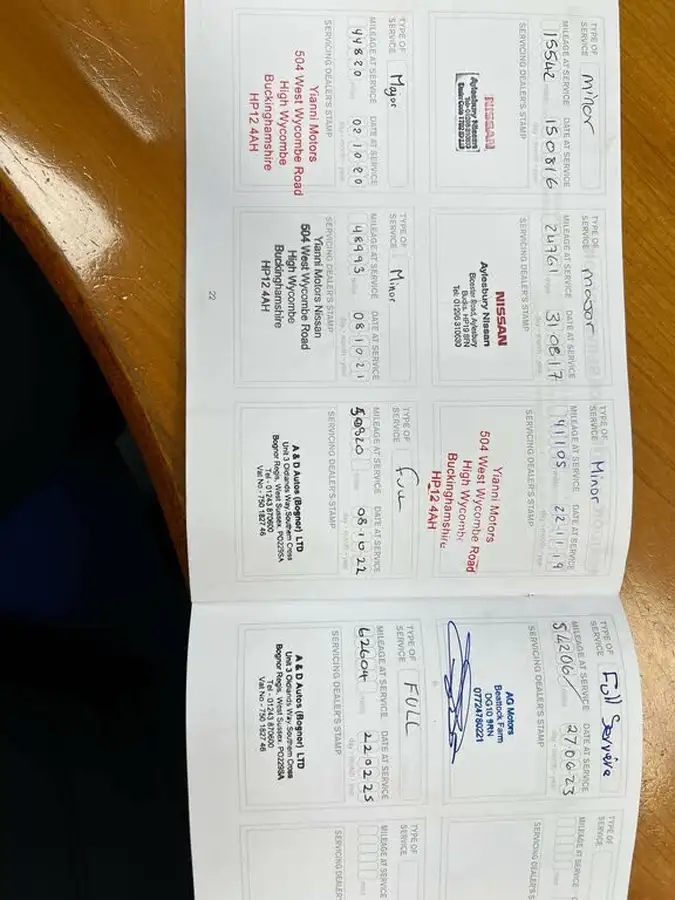 TYPE OF SERVICE minor
MILEAGE AT SERVICE DATE AT SERVICE
15542 miles 150816
day - month - year
SERVICING DEALER'S STAMP
NISSAN
Aylesbury Nissan
TYPE OF SERVICE major
MILEAGE AT SERVICE DATE AT SERVICE
24761 miles 310817
day - month - year
SERVICING DEALER'S STAMP
NISSAN
Aylesbury Nissan
Bicester Road, Aylesbury
Bucks. HP19 8FN
Tel: 01296 310030
TYPE OF SERVICE Minor
MILEAGE AT SERVICE DATE AT SERVICE
41105 miles 221119
day - month - year
SERVICING DEALER'S STAMP
Yianni Motors
504 West Wycombe Road
High Wycombe
Buckinghamshire
HP12 4AH
TYPE OF SERVICE Major
MILEAGE AT SERVICE DATE AT SERVICE
44820 miles 021020
day - month - year
SERVICING DEALER'S STAMP
Yianni Motors
504 West Wycombe Road
High Wycombe
Buckinghamshire
HP12 4AH
TYPE OF SERVICE Minor
MILEAGE AT SERVICE DATE AT SERVICE
48993 miles 081021
day - month - year
SERVICING DEALER'S STAMP
Yianni Motors Nissan
504 West Wycombe Road
High Wycombe
Buckinghamshire
HP12 4AH
TYPE OF SERVICE Full
MILEAGE AT SERVICE DATE AT SERVICE
50820 miles 081022
day - month - year
SERVICING DEALER'S STAMP
A & D Autos (Bognor) LTD
Unit 3 Oldlands Way, Southern Cross
Bognor Regis, West Sussex. PO229SA
Tel - 01243 870600
Vat No - 750 1827 46
22
TYPE OF SERVICE Full Service
MILEAGE AT SERVICE DATE AT SERVICE
54206 miles 270623
day - month - year
SERVICING DEALER'S STAMP
AG Motors
Beattock Farm
DG10 9RN
07724780221
TYPE OF SERVICE
MILEAGE AT SERVICE DATE AT SERVICE
miles
SERVICING DEALER'S
TYPE OF SERVICE FULL
MILEAGE AT SERVICE DATE AT SERVICE
62604 miles 220225
day - month - year
SERVICING DEALER'S STAMP
A & D Autos (Bognor) LTD
Unit 3 Oldlands Way, Southern Cross
Bognor Regis, West Sussex. PO229SA
Tel - 01243 870600
Vat No - 750 1827 46
TYPE OF SERVICE
MILEAGE AT SERVICE DATE AT SERVICE
miles
SERVICING DEALER'